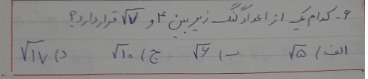 ۶- کدام یک از اعداد گنگ زیر بین ۴ و √۷ قرار دارد؟
الف) √۵ ب) √۶ ج) √۱۰ د) √۱۷